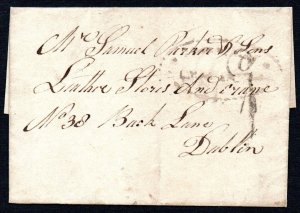 Mr Samuel Parker & Sons
Leather Stores
No 38 Back Lane
Dublin